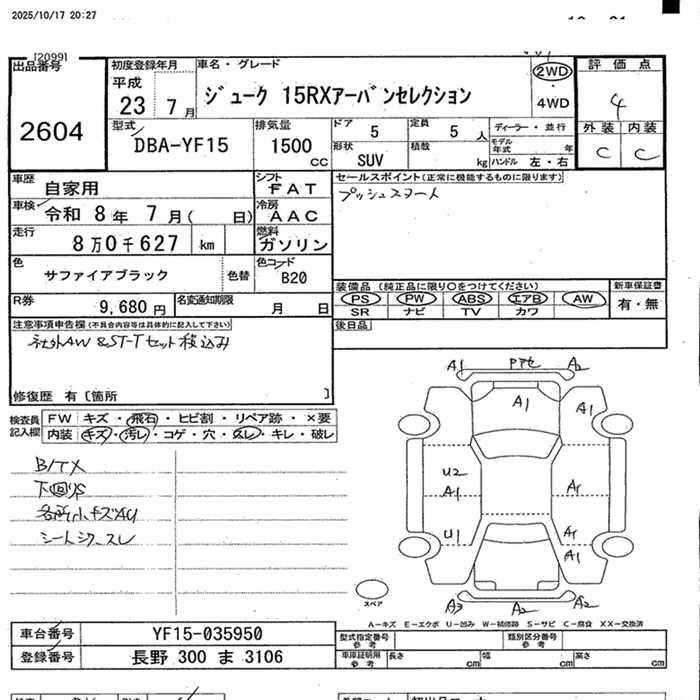 2025/10/17 20:27
[2099]
出品番号
2604
初度登録年月
平成
23 7月
車名・グレード
ジューク 15RXアーバンセレクション
2WD
4WD
評価点
4
外装 内装
C C
型式
DBA-YF15
排気量
1500
CC
ドア 5
定員 5人
形状 SUV
積載 kg
ディーラー・並行
モデル年式 年
ハンドル 左・右
車歴
自家用
シフト
FAT
車検
令和 8年 7月( 日)
冷房
AAC
走行
8万0千627 km
燃料
ガソリン
色
サファイアブラック
色替
色コード
B20
R券
9,680円
名変通知期限
月 日
セールスポイント(正常に機能するものに限ります)
プッシュスタート
装備品 (純正品に限り○をつけてください)
PS PW ABS エアB AW
SR ナビ TV カワ
新車保証書
有・無
後日品
注意事項申告欄(不具合内容等は具体的に記入して下さい)
社外AW &ST-Tセット積込み
修復歴 有〔箇所 〕
検査員
記入欄
FW キズ・飛石・ヒビ割・リペア跡・×要
内装 キズ・汚レ・コゲ・穴・スレ・キレ・破レ
B/TX
下回りS
各所小キズAU
シートシワ・スレ
A1 Pアセ A2
A1 A1
U2
A1 A1
U1 A1
A1
A3 A2 A2
スペア
A-キズ E-エクボ U-凹み W-補修跡 S-サビ C-腐食 XX-交換済
車台番号
YF15-035950
登録番号
長野 300 ま 3106
型式指定番号
参考
類別区分番号
参考
車庫証明用
参考
長さ cm
幅 cm
高さ cm